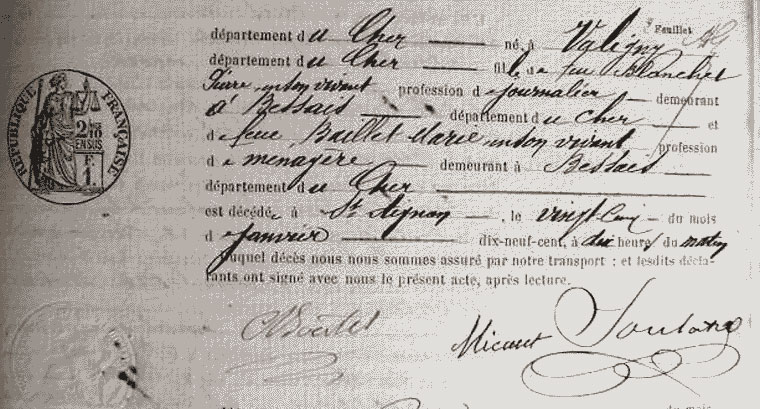 3e Feuillet
département du Cher né, à Valigny
département du Cher fils de feu Blanchet
Pierre en son vivant profession de journalier demeurant
à Bessais département du Cher et
de feue Bullet Marie en son vivant profession
de menagère demeurant à Bessais
département du Cher
est décédé, à St Aignan, le vingt cinq du mois
de Janvier dix-neuf-cent, à dix heures du matin
duquel décès nous nous sommes assuré par notre transport ; et lesdits décla-
rants ont signé avec nous le présent acte, après lecture.
RÉPUBLIQUE FRANÇAISE
2/10
EN SUS
F.
1
Micaut
du mois